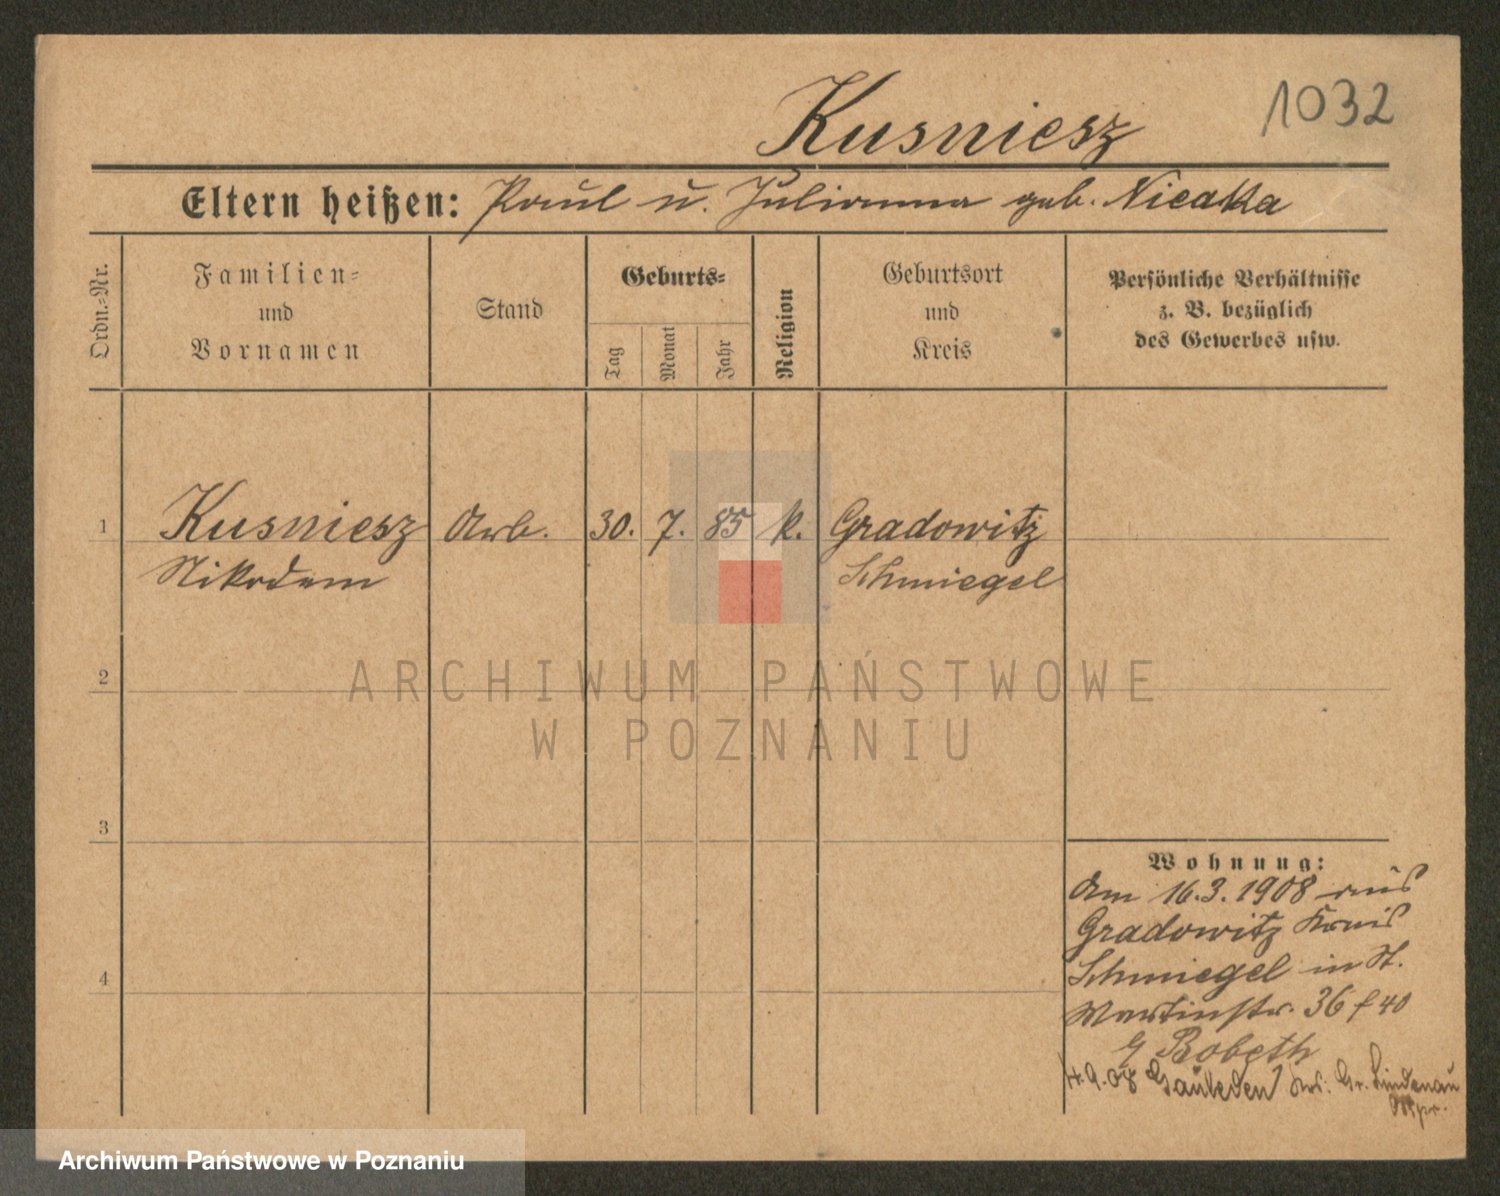 1032
Kusniesz
Eltern heißen: Paul u. Julianna geb.
Ordn.=Nr.
Familien=
und
Vornamen
Stand
Geburts=
Tag
Monat
Jahr
Religion
Geburtsort
und
Kreis
Persönliche Verhältnisse
z. B. bezüglich
des Gewerbes usw.
1 Kusniesz Arb. 30. 7. 85 k. Gradowitz
Nikodem Schmiegel
2
3
4
Wohnung:
Am 16.3.1908 aus
Gradowitz Kreis
Schmiegel in St.
Martinstr. 36 f 40
Bobeth
Gauleden Krs: Gr. Lindenau
Ostpr.
ARCHIWUM PAŃSTWOWE
W POZNANIU
Archiwum Państwowe w Poznaniu